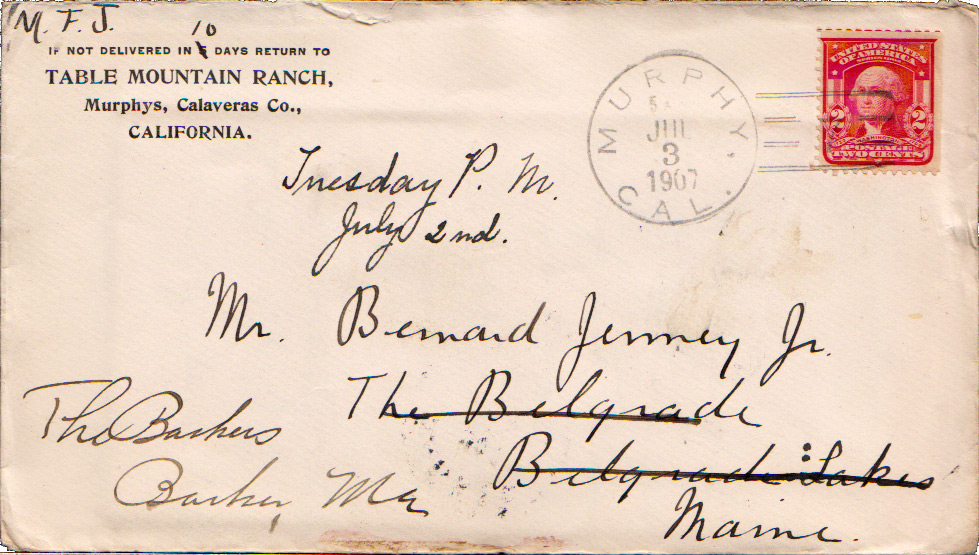 M. F. J.
10
IF NOT DELIVERED IN 5 DAYS RETURN TO
TABLE MOUNTAIN RANCH,
Murphys, Calaveras Co.,
CALIFORNIA.
MURPHY,
JUL
3
1907
CAL.
UNITED STATES
OF AMERICA
2 2
POSTAGE
TWO CENTS
Tuesday P. M.
July 2nd.
Mr. Bernard Jenney Jr.
The Belgrade
Belgrade Lakes
Maine.
The Barkers
Barker, Me